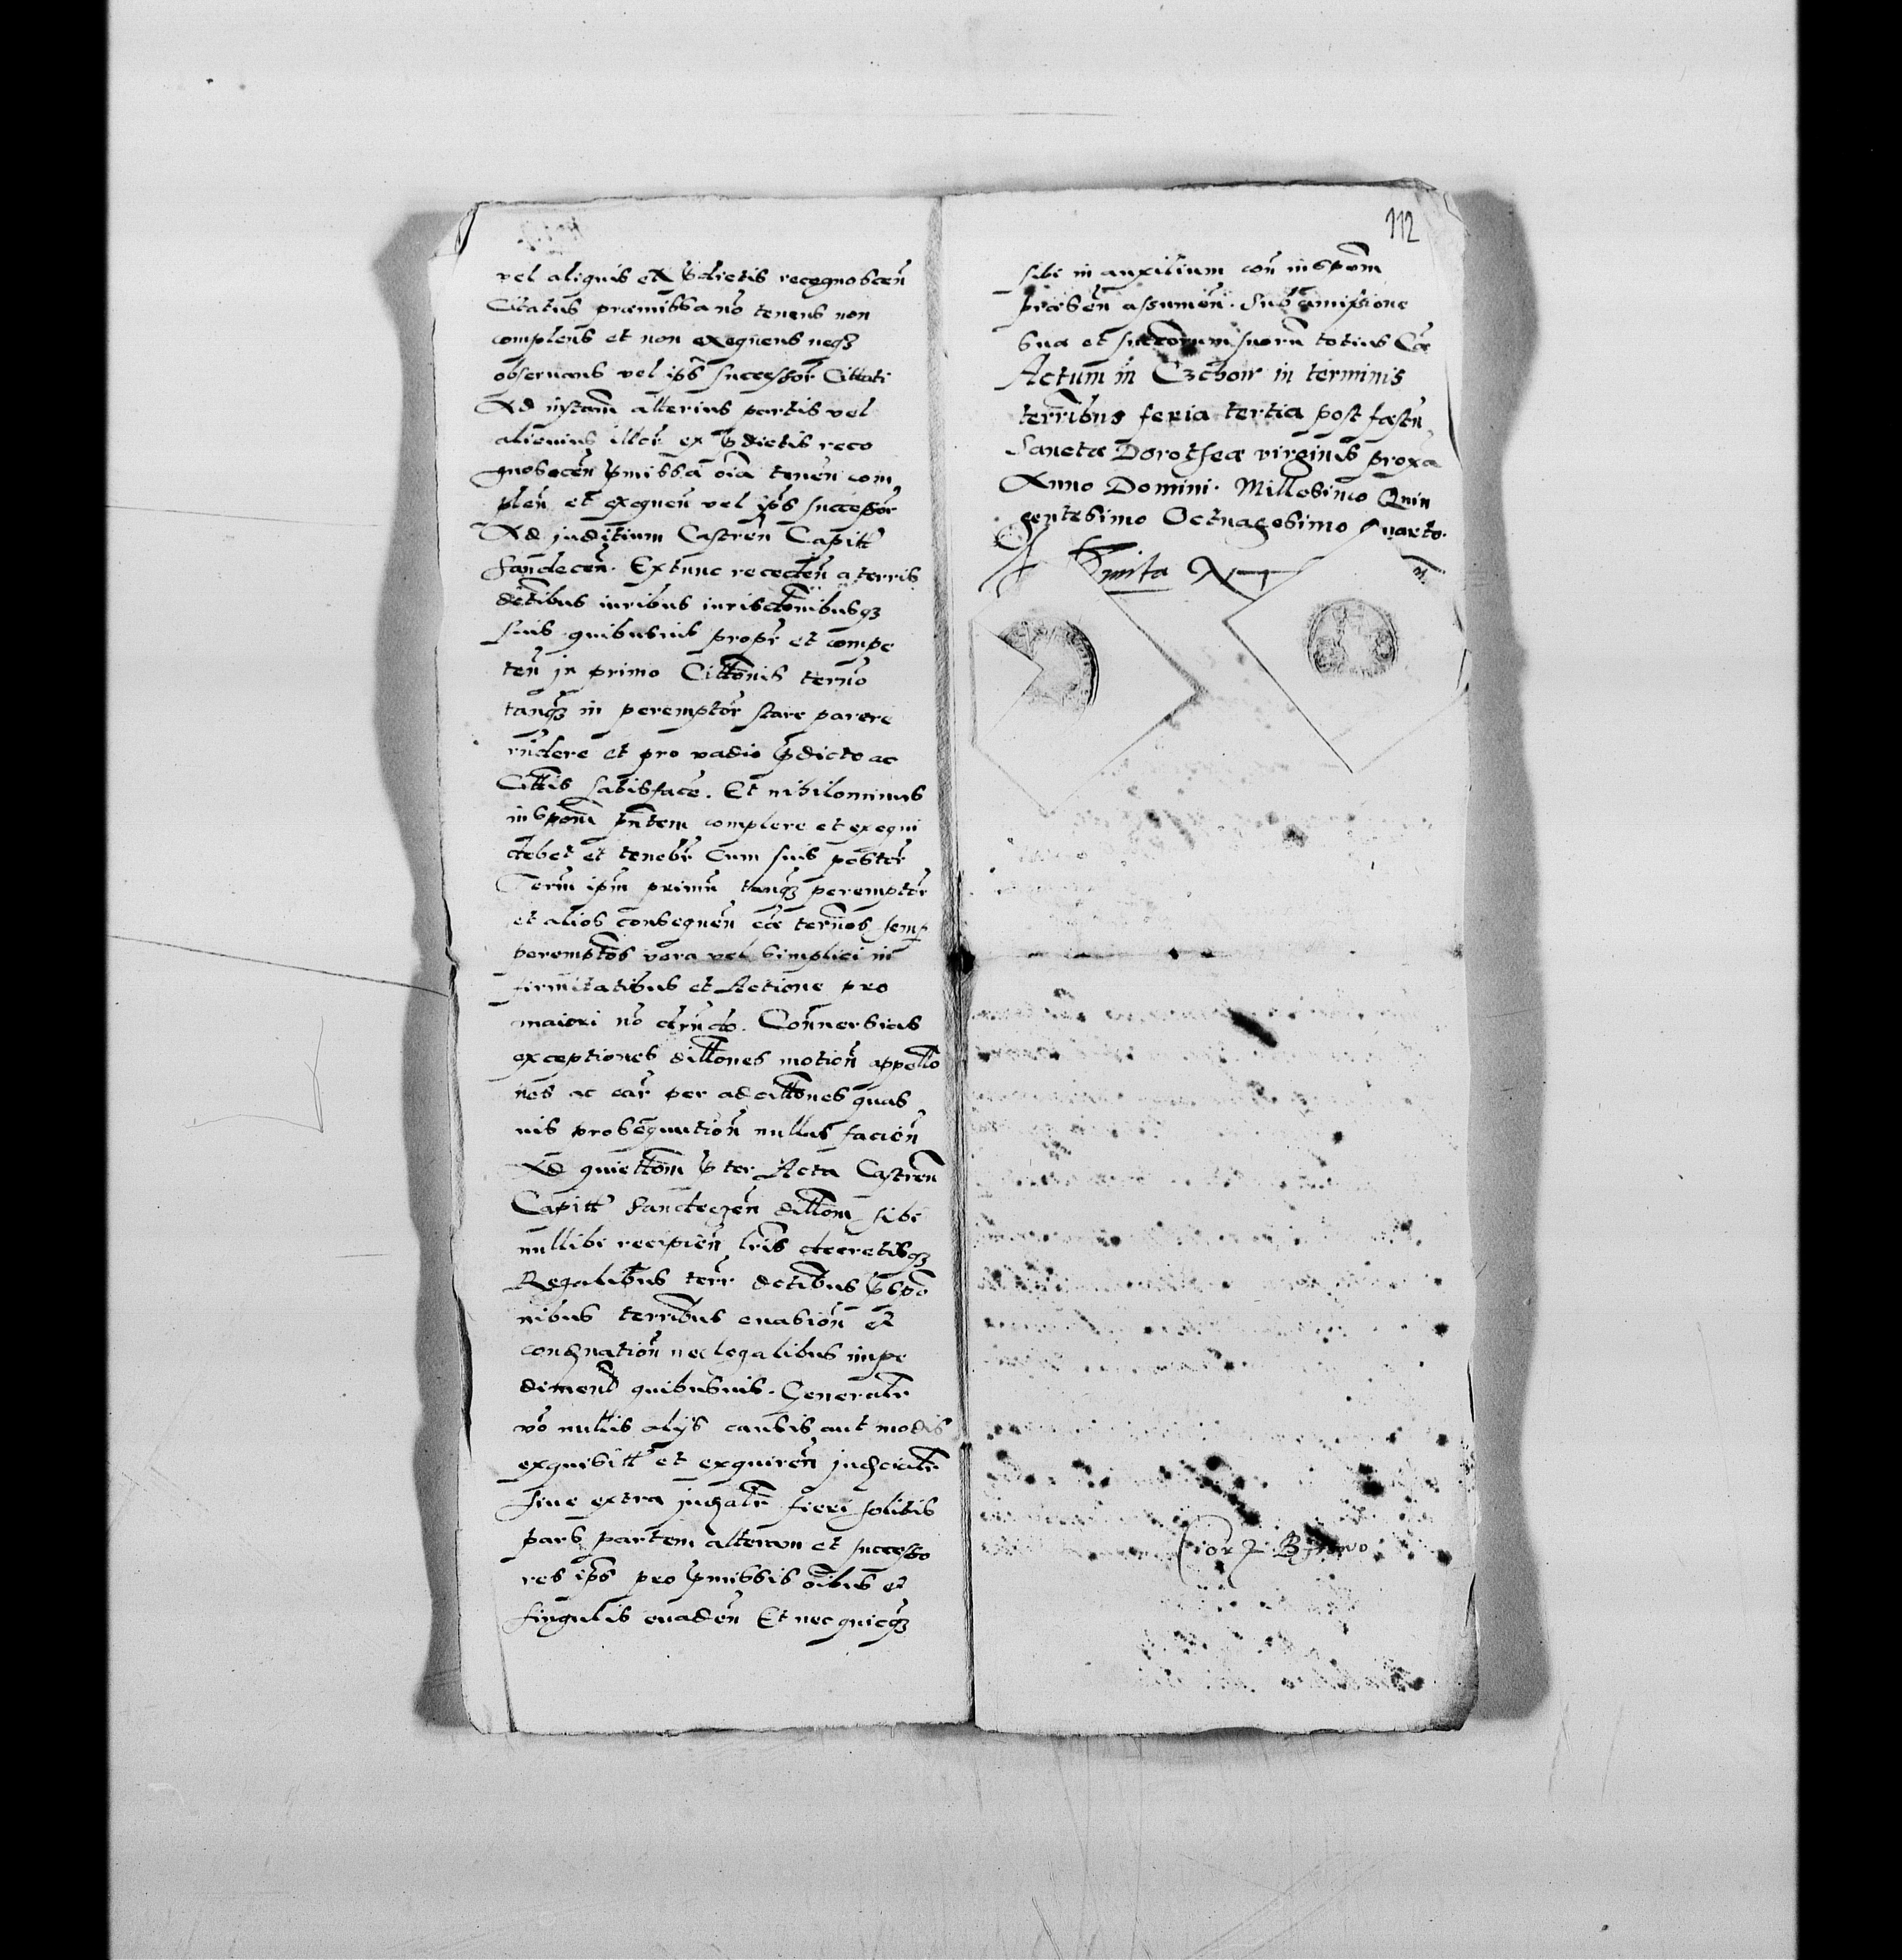 vel aliquis ex p̄dictis recognoscen̄
Citatus præmissa nō tenens non
complens et non exequens neqȝ
obseruans vel ip̄s successor̄ Cittati
Ad instam̄ alterius partis vel
alicuius illor̄ ex p̄dictis reco
gnoscen̄ p̄missa oīa tenen̄ com
plen̄ et exequen̄ vel ip̄s successor̄
Ad juditium Castren̄ Capitt̄
Sandecen̄. Extunc receden̄ a terris
dc̄tibus iuribus iurisdc̄tonibusqȝ
suis quibusuis propr̄ et compe
ten̄ in primo Citt̄onis term̄o
tanqȝ in peremptor̄ stare parere
rn̄dere et pro vadio p̄dicto ac
Citt̄is satisface͞. Et nihilominus
inscpōm pn̄tem complere et exequi
debet et tenebr̄ Cum suis poster̄
Term̄ ip̄m primū tanqȝ peremptor̄
et alios consequen̄ eē termn̄os semp̄
peremptōs vera vel simplici in
firmitatibus et Actione pro
maiori nō dr̄ndo. Con̄uersias
exceptiones dill̄ones motion̄ appellō
nes ac ear̄ per adcitt̄ones quas
uis prosequution̄ nullas facien̄
Ad quiett̄om p̄ter Acta Castren̄
Capitt̄ Sandeczen̄ dill̄om sibi
nullibi recipien̄ lr̄is decretisqȝ
Regalibus terr̄ dc̄tibus p̄scpō
nibus terrībus euasion̄ et
consnation̄ nec legalibus impe
diment̄ quibusuis. Generalr̄
vō nullis alijs causis aut modis
exquisitt̄ et exquiren̄ judicialr̄
siue extra judealr̄ fieri solitis
pars partem alteram et successo
res ip̄s pro p̄missis oībus et
singulis euaden̄ Et nec quicqȝ
112
sibi in auxilium con̄ inscpōm
præsen̄ assumen̄. Sub amissione
sua et succōrum suorū totius Cæ
Actum in Czchow in terminis
terrībus feria tertia post festū
Sanctæ Dorotheæ virginis proxā
Anno Domini. Millesimo Quin
gentesimo Octuagesimo quarto.